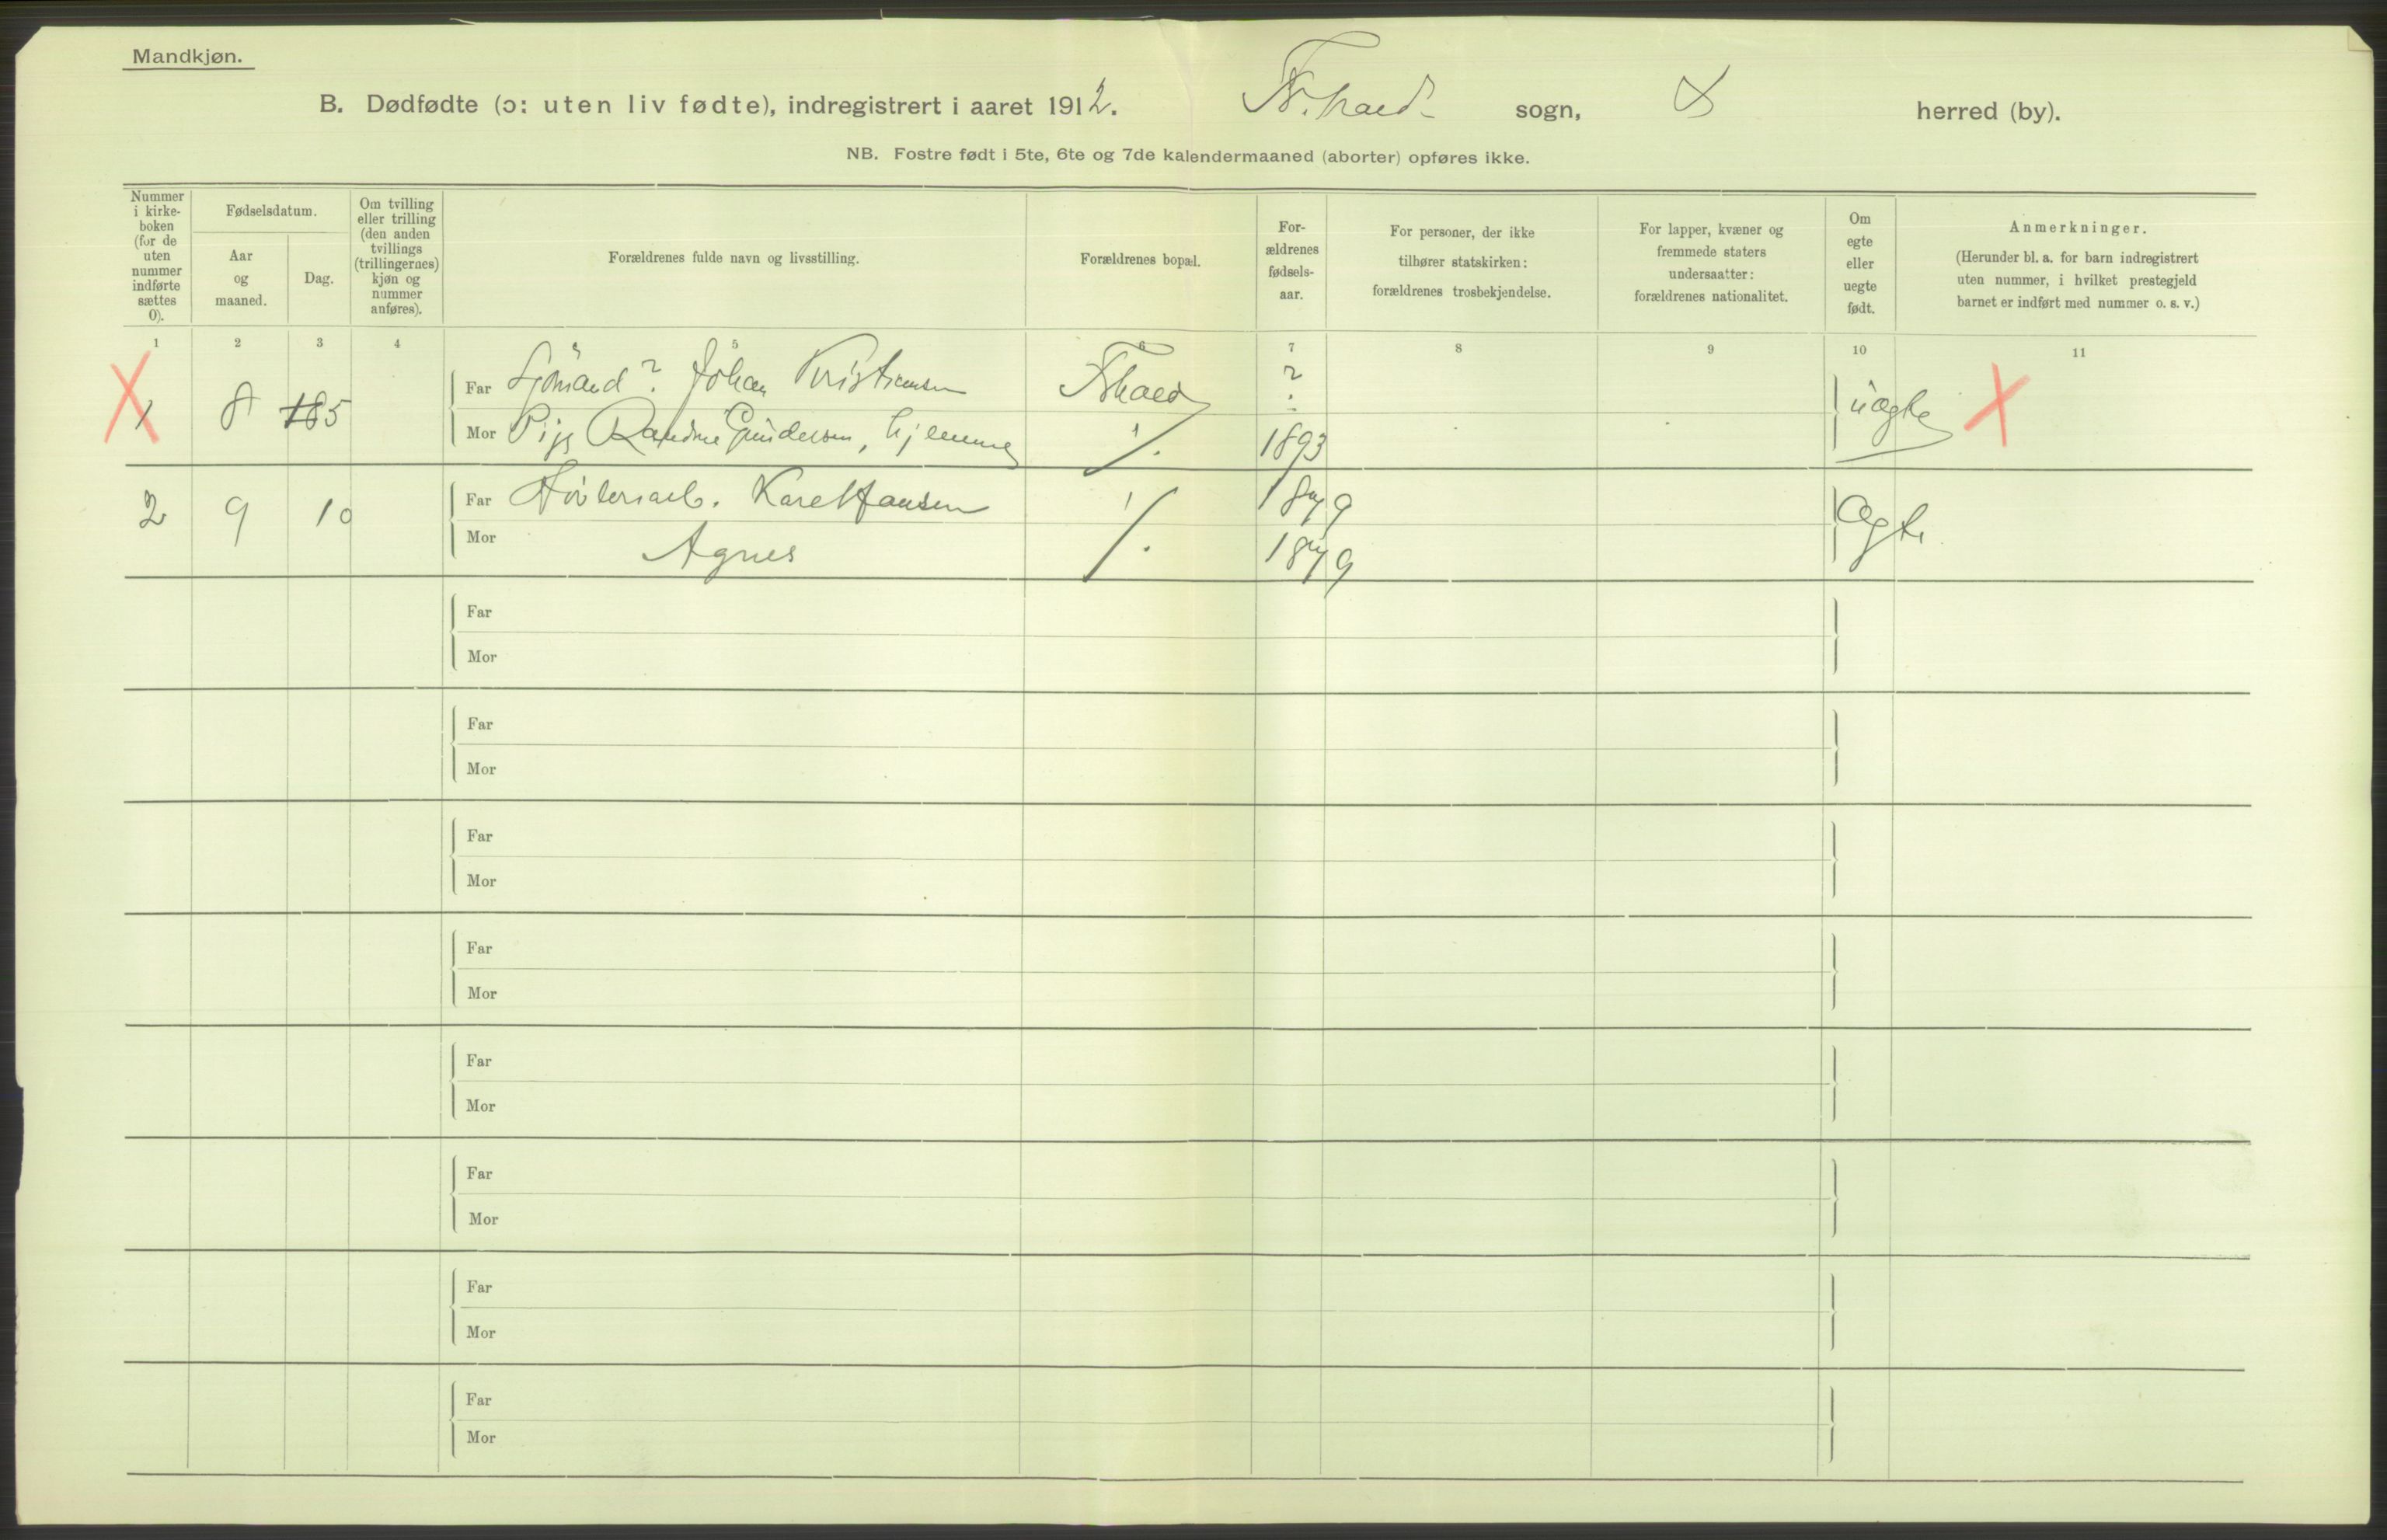 Mandkjøn.
B. Dødfødte (ɔ: uten liv fødte), indregistrert i aaret 1912. Fr.hald sogn, herred (by).
NB. Fostre født i 5te, 6te og 7de kalendermaaned (aborter) opføres ikke.
Nummer i kirke-boken (for de uten nummer indførte sættes 0).
Fødselsdatum.
Aar og maaned.
Dag.
Om tvilling eller trilling (den anden tvillings (trillingernes) kjøn og nummer anføres).
Forældrenes fulde navn og livsstilling.
Forældrenes bopæl.
For-ældrenes fødsels-aar.
For personer, der ikke tilhører statskirken: forældrenes trosbekjendelse.
For lapper, kvæner og fremmede staters undersaatter: forældrenes nationalitet.
Om egte eller uegte født.
Anmerkninger.
(Herunder bl. a. for barn indregistrert uten nummer, i hvilket prestegjeld barnet er indført med nummer o. s. v.)
1 2 3 4 5 6 7 8 9 10 11
1 8 5 Far Sjömand ? Johan Kristiansen Fr.hald ? uægte
Mor Pige Gundersen, hjemme ./. 1893
2 9 10 Far Karel Hansen ./. 1879 Ægte
Mor Agnes 1879
Far
Mor
Far
Mor
Far
Mor
Far
Mor
Far
Mor
Far
Mor
Far
Mor
Far
Mor